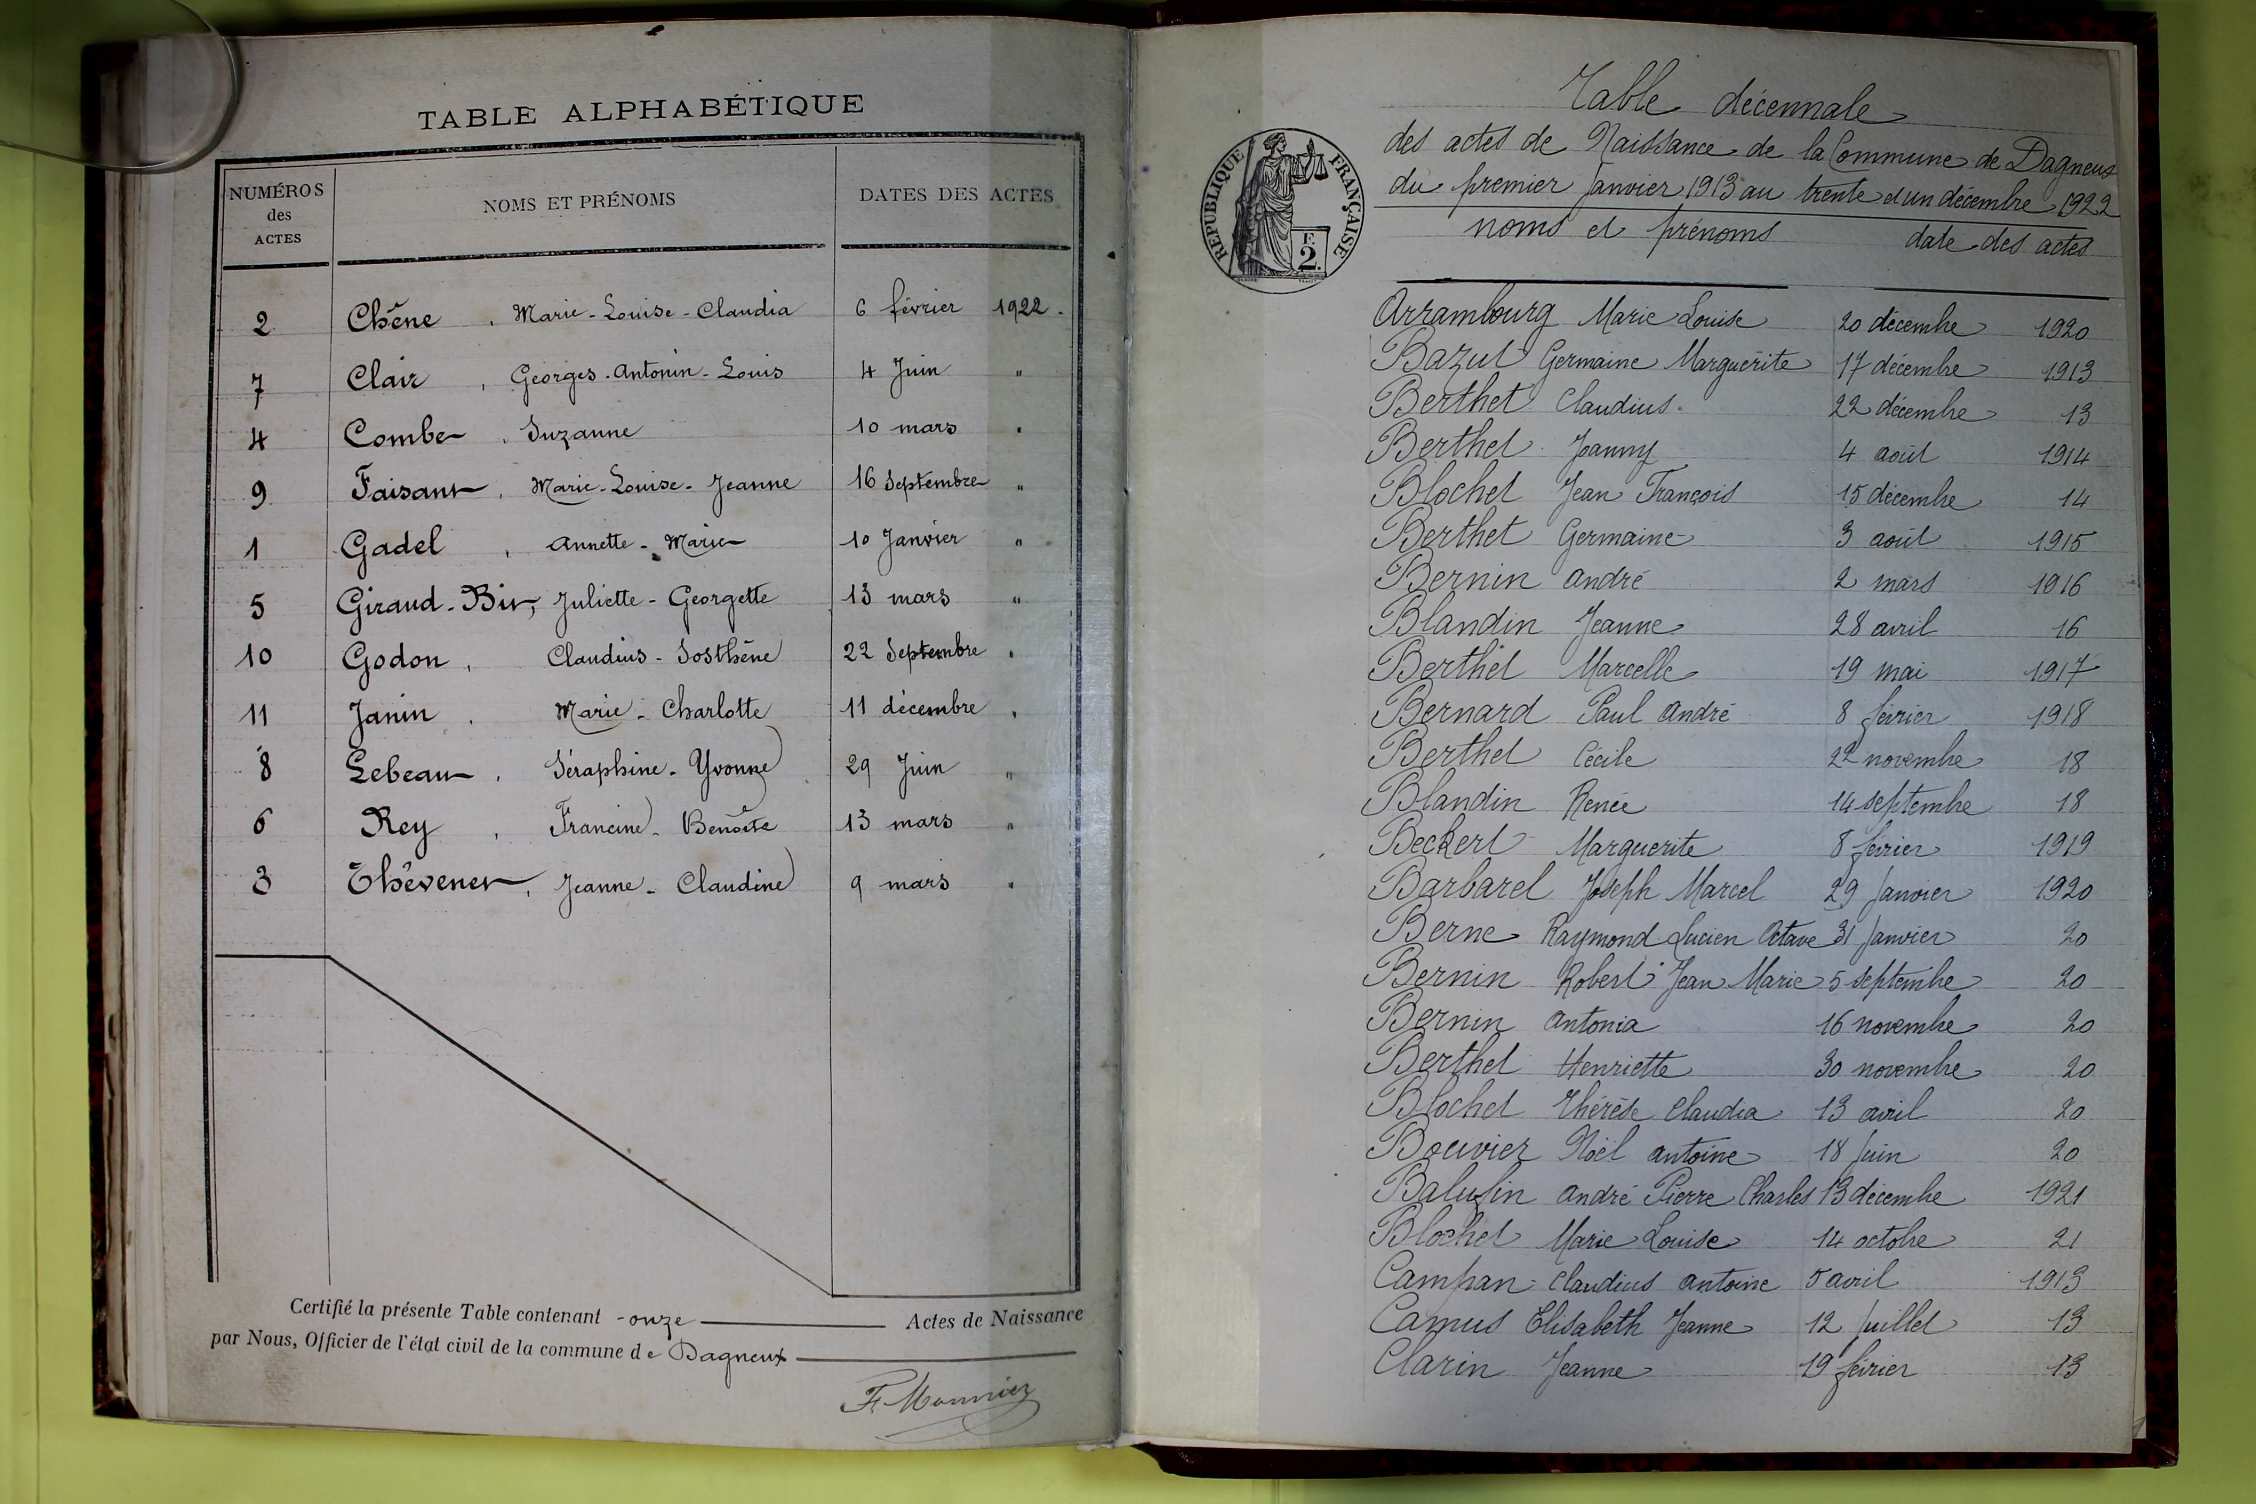 TABLE ALPHABÉTIQUE
NUMÉROS des ACTES NOMS ET PRÉNOMS DATES DES ACTES
2 Chêne, Marie-Louise-Claudia 6 février 1922.
7 Clair, Georges-Antonin-Louis 4 Juin "
4 Combe, Suzanne 10 mars "
9 Faisant, Marie-Louise-Jeanne 16 Septembre "
1 Gadel, Annette-Marie 10 Janvier "
5 Giraud-Bit, Juliette-Georgette 13 mars "
10 Godon, Claudius-Sosthène 22 Septembre "
11 Janin, Marie-Charlotte 11 décembre "
8 Lebeau, Séraphine-Yvonne 29 Juin "
6 Rey, Francine-Benoîte 13 mars "
3 Thévenet, Jeanne-Claudine 9 mars "
Certifié la présente Table contenant -onze Actes de Naissance
par Nous, Officier de l'état civil de la commune de Dagneux
F. Monnier
Table décennale
des actes de Naissance de la Commune de Dagneux
du premier Janvier 1913 au trente et un décembre 1922
RÉPUBLIQUE FRANÇAISE
F. 2.
noms et prénoms date des actes
Arrambourg Marie Louise 20 décembre 1920
Bazut Germaine Marguerite 17 décembre 1913
Berthet Claudius. 22 décembre 13
Berthet Joanny 4 août 1914
Blochet Jean François 15 décembre 14
Berthet Germaine 3 août 1915
Bernin André 2 mars 1916
Blandin Jeanne 28 avril 16
Berthet Marcelle 19 mai 1917
Bernard Paul André 8 février 1918
Berthet Cécile 22 novembre 18
Blandin Renée 14 septembre 18
Beckert Marguerite 8 février 1919
Barbaret Joseph Marcel 29 Janvier 1920
Berne Raymond Lucien Octave 31 Janvier 20
Bernin Robert Jean Marie 5 septembre 20
Bernin Antonia 16 novembre 20
Berthet Henriette 30 novembre 20
Blochet Thérèse Claudia 13 avril 20
Bouvier Noël Antoine 18 Juin 20
Balufin André Pierre Charles 13 décembre 1921
Blochet Marie Louise 14 octobre 21
Campan Claudius Antoine 5 avril 1913
Camus Elisabeth Jeanne 12 Juillet 13
Clarin Jeanne 19 février 13